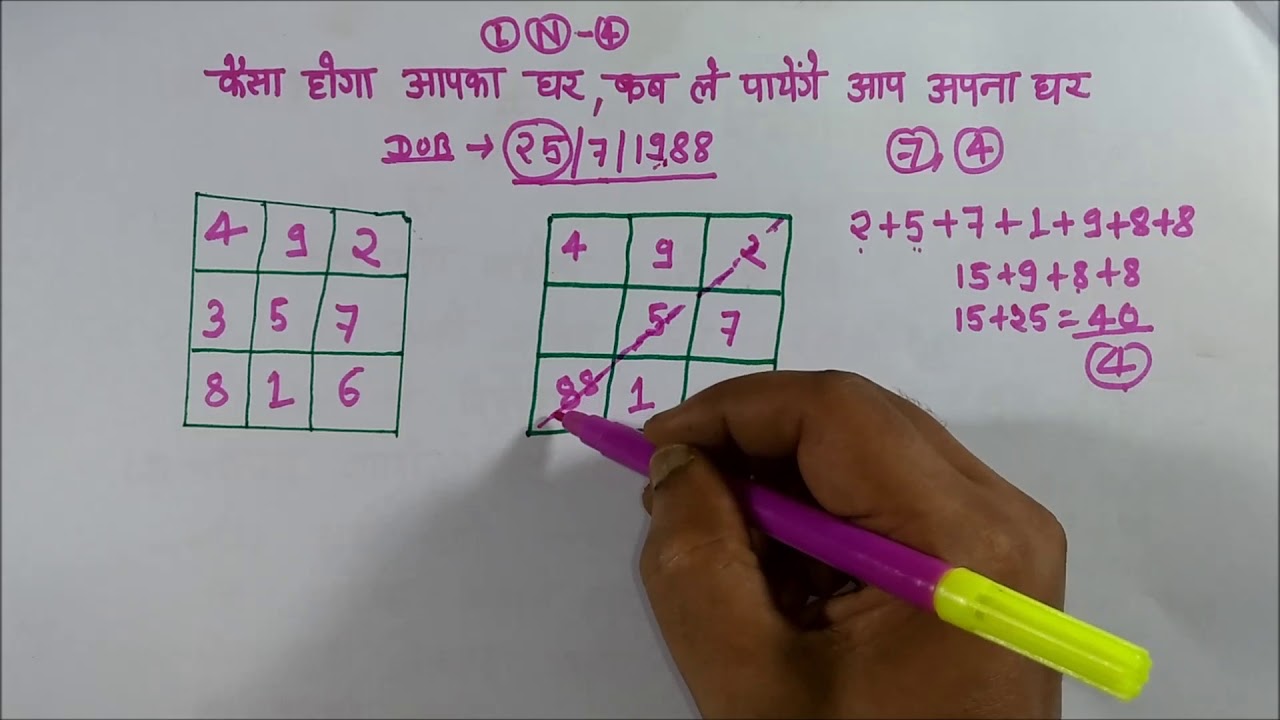 L N - 4
कैसा होगा आपका घर, कब ले पायेंगे आप अपना घर
DOB → 25/7/1988
7, 4
4 9 2
3 5 7
8 1 6
4 9 2
5 7
88 1
2+5+7+1+9+8+8
15+9+8+8
15+25=40
4